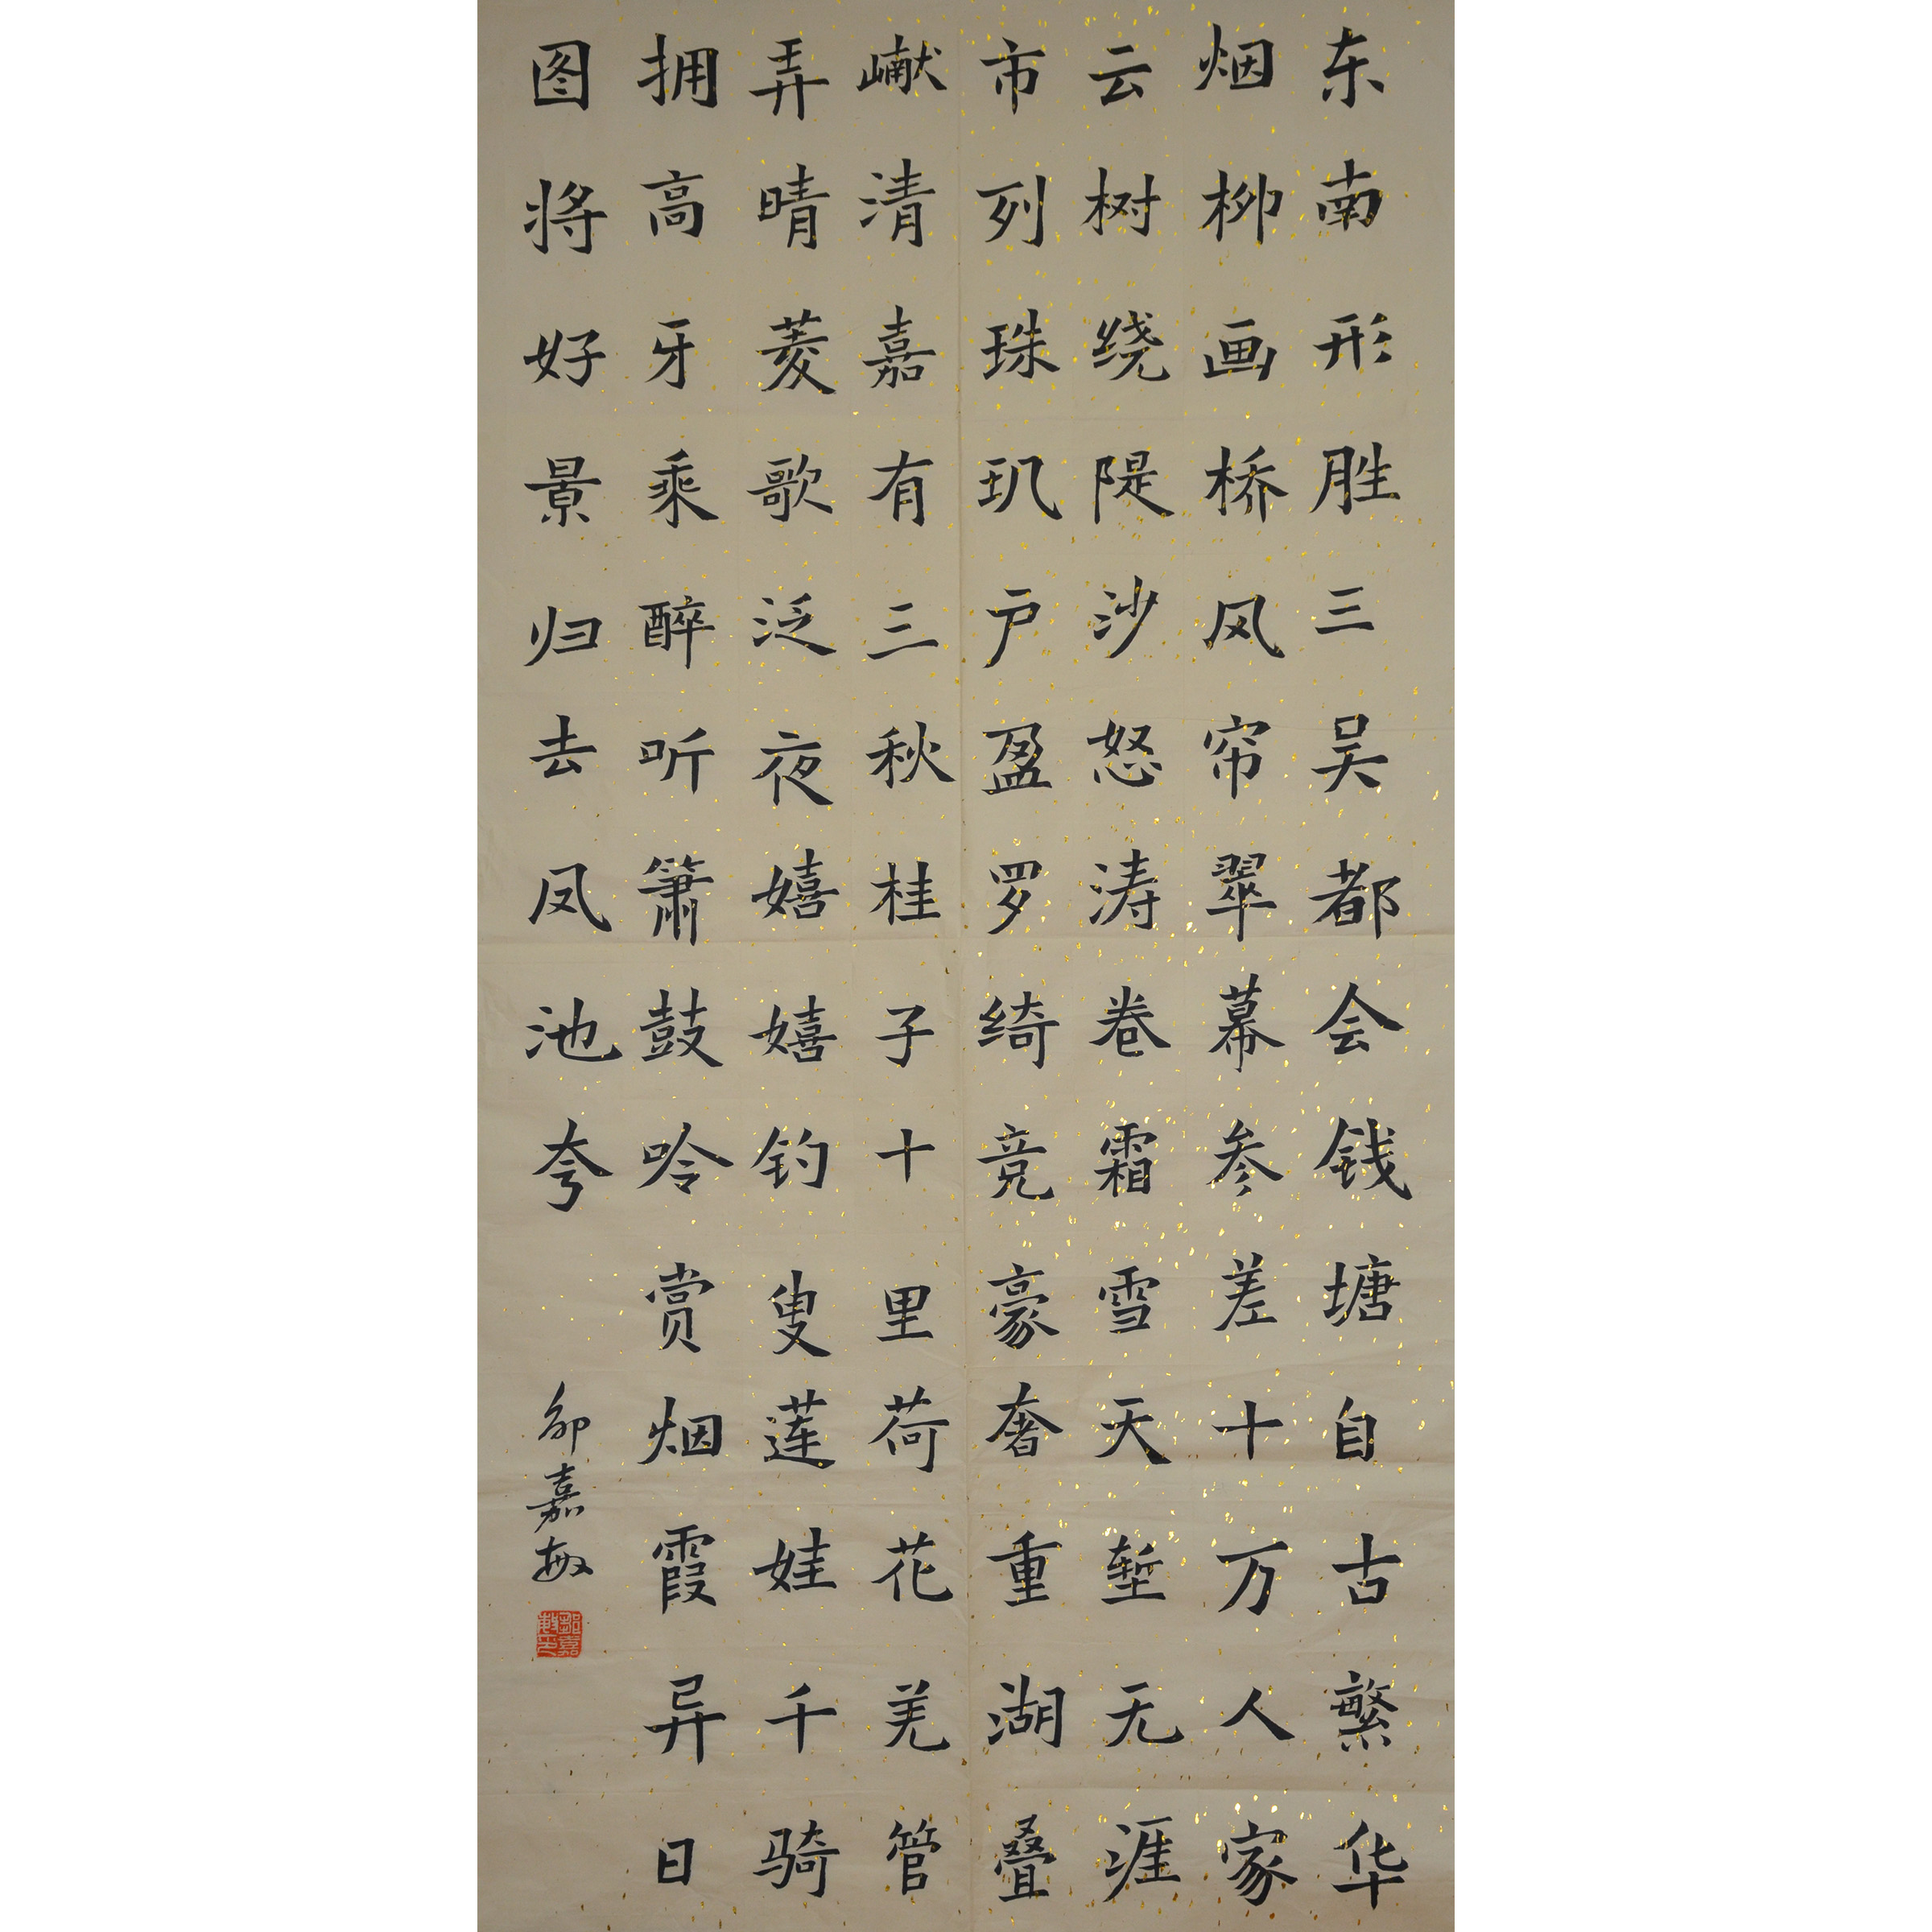 东南形胜三吴都会钱塘自古繁华
烟柳画桥风帘翠幕参差十万人家
云树绕隄沙怒涛卷霜雪天堑无涯
市列珠玑户盈罗绮竞豪奢重湖叠
𪩘清嘉有三秋桂子十里荷花羌管
弄晴菱歌泛夜嬉嬉钓叟莲娃千骑
拥高牙乘醉听箫鼓吟赏烟霞异日
图将好景归去凤池夸
邹嘉敏